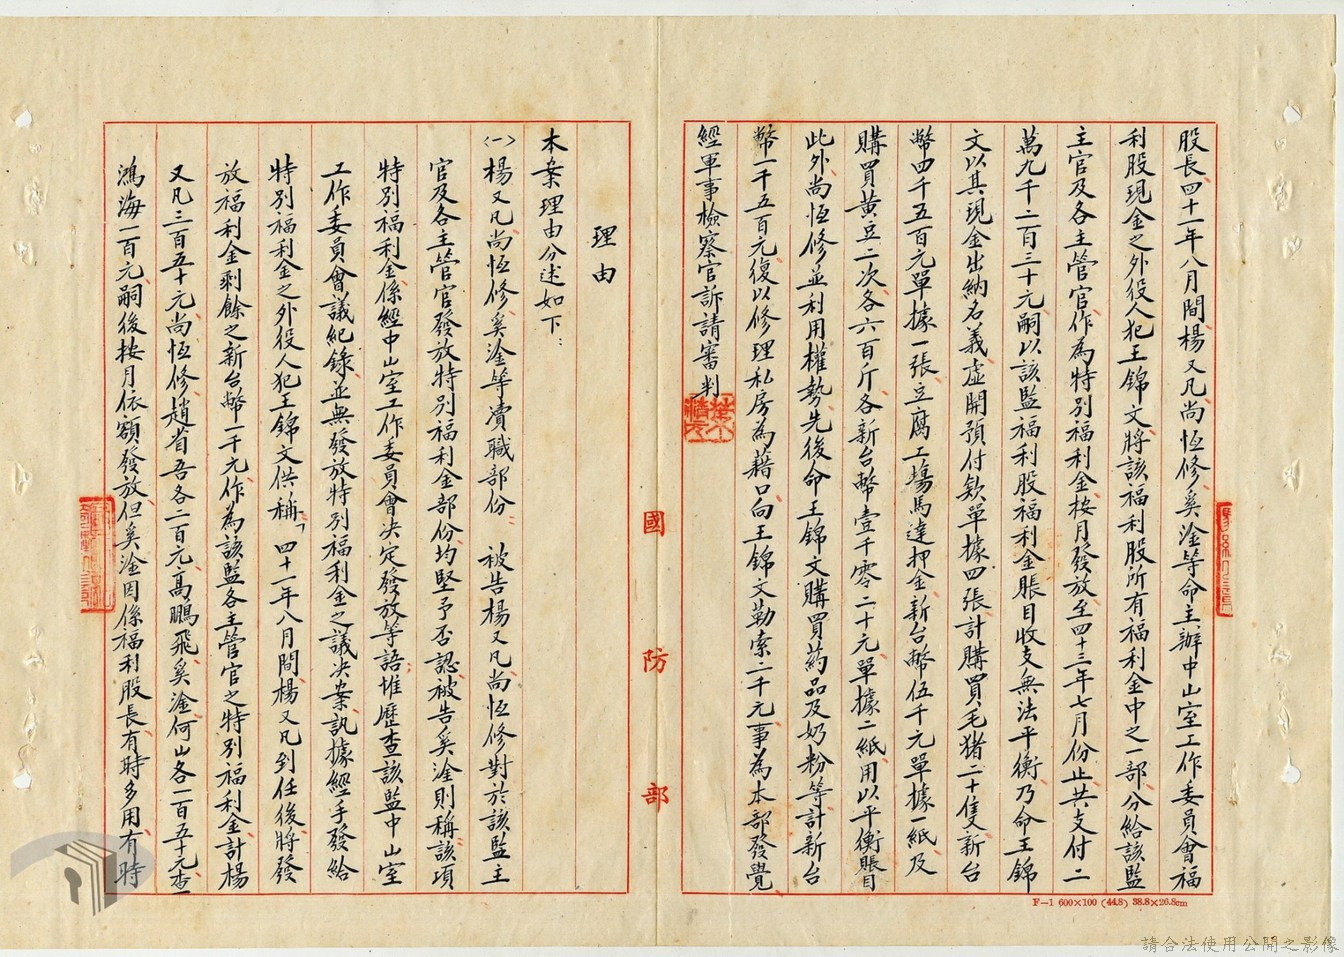 股長、四十一年八月間楊又凡、尚恆修、奚淦等命主辦中山室工作委員會福
利股現金之外役人犯王錦文、將該福利股所有福利金中之一部、分給該監
主官及各主管官、作為特別福利金、按月發放、至四十三年七月份止、共支付二
萬九千二百三十元、嗣以該監福利股福利金賬目收支無法平衡、乃命王錦
文以其現金出納名義、虛開預付欵單據四張、計購買毛猪二十隻、新台
幣四千五百元單據一張、豆腐工場馬達押金新台幣伍千元單據一紙、及
購買黃豆二次、各六百斤、各新台幣壹千零二十元單據二紙、用以平衡賬目、
此外、尚恆修並利用權勢、先後命王錦文購買葯品及奶粉等、計新台
幣一千五百元、復以修理私房為藉口、向王錦文勒索二千元、事為本部發覺、
經軍事檢察官訴請審判、
理由
本案理由分述如下：
㈠楊又凡、尚恆修、奚淦等瀆職部份： 被告楊又凡、尚恆修對於該監主
官及各主管官發放特別福利金部份、均堅予否認、被告奚淦則稱、該項
特別福利金、係經中山室工作委員會決定發放等語、惟歷查該監中山室
工作委員會議紀錄、並無發放特別福利金之議決案、訊據經手發給
特別福利金之外役人犯王錦文供稱：「四十一年八月間、楊又凡到任後、將發
放福利金剩餘之新台幣一千元、作為該監各主管官之特別福利金、計楊
又凡三百五十元、尚恆修、趙省吾各二百元、高鵬飛、奚淦、何山各一百五十元、查
鴻海一百元、嗣後按月依額發放、但奚淦因係福利股長、有時多用、有時
國防部
F-1 600×100 (44.8) 38.8×26.8cm
請合法使用公開之影像